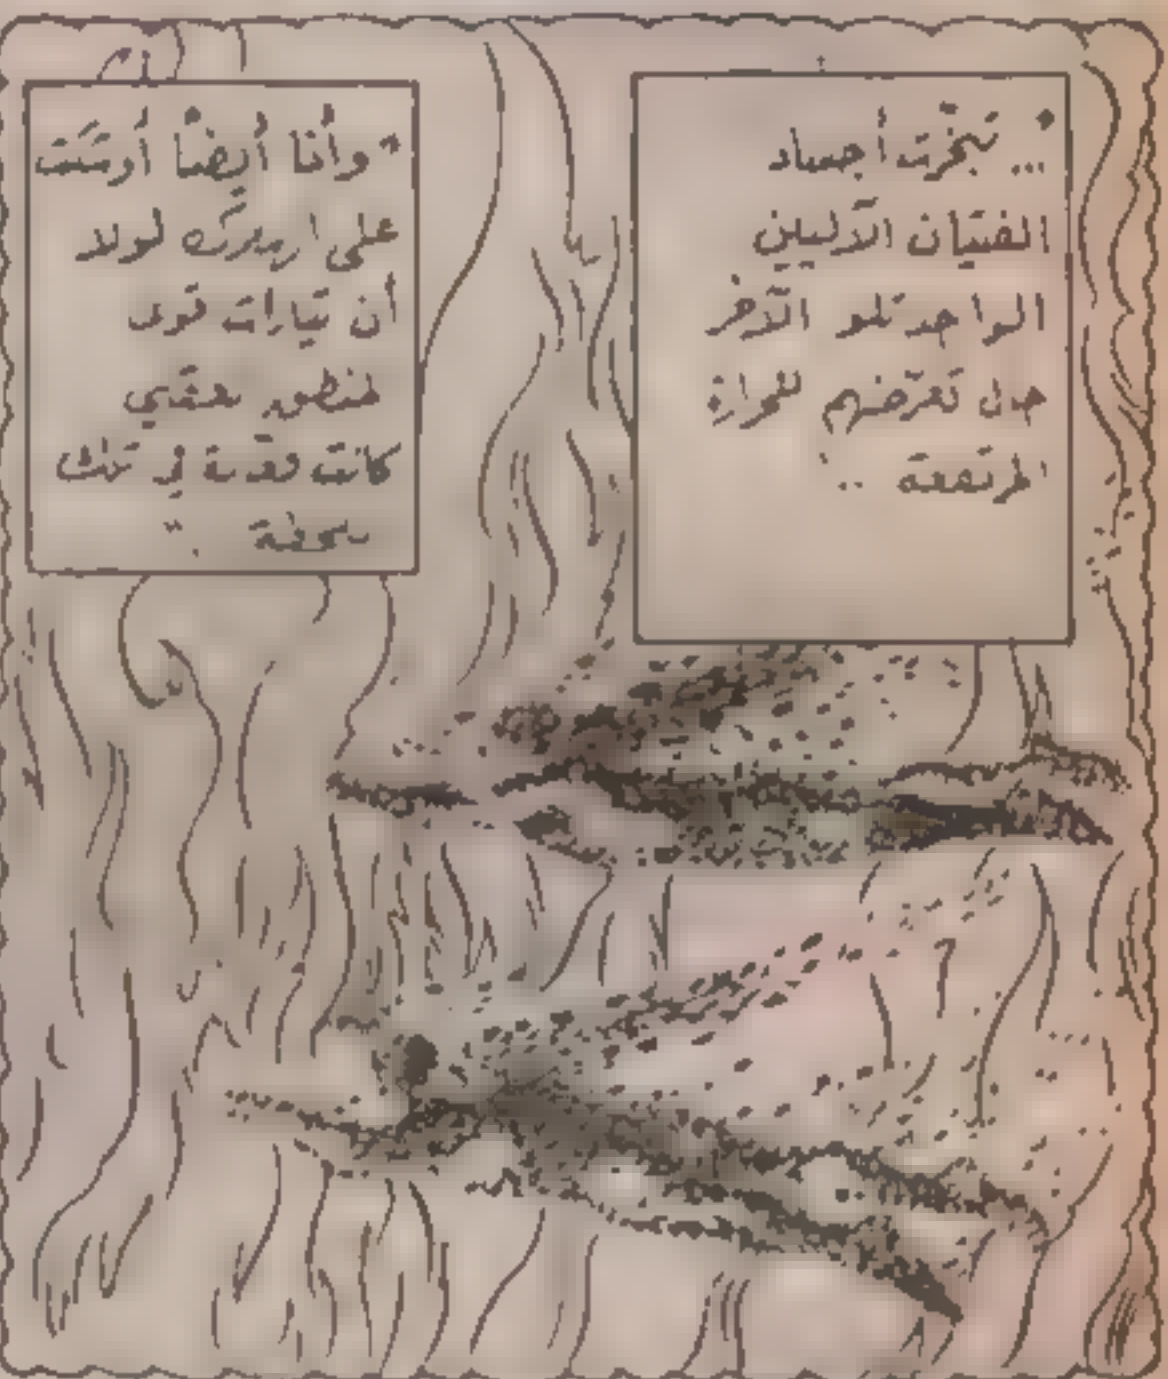 ... تبخّرت أجساد
الفتيان الآليين
الواحد تلو الآخر
حال تعرّضهم للحرارة
المرتفعة ..
" وأنا أيضًا أوشكت
على لولا
أن تيارات قوى
كانت في تلك